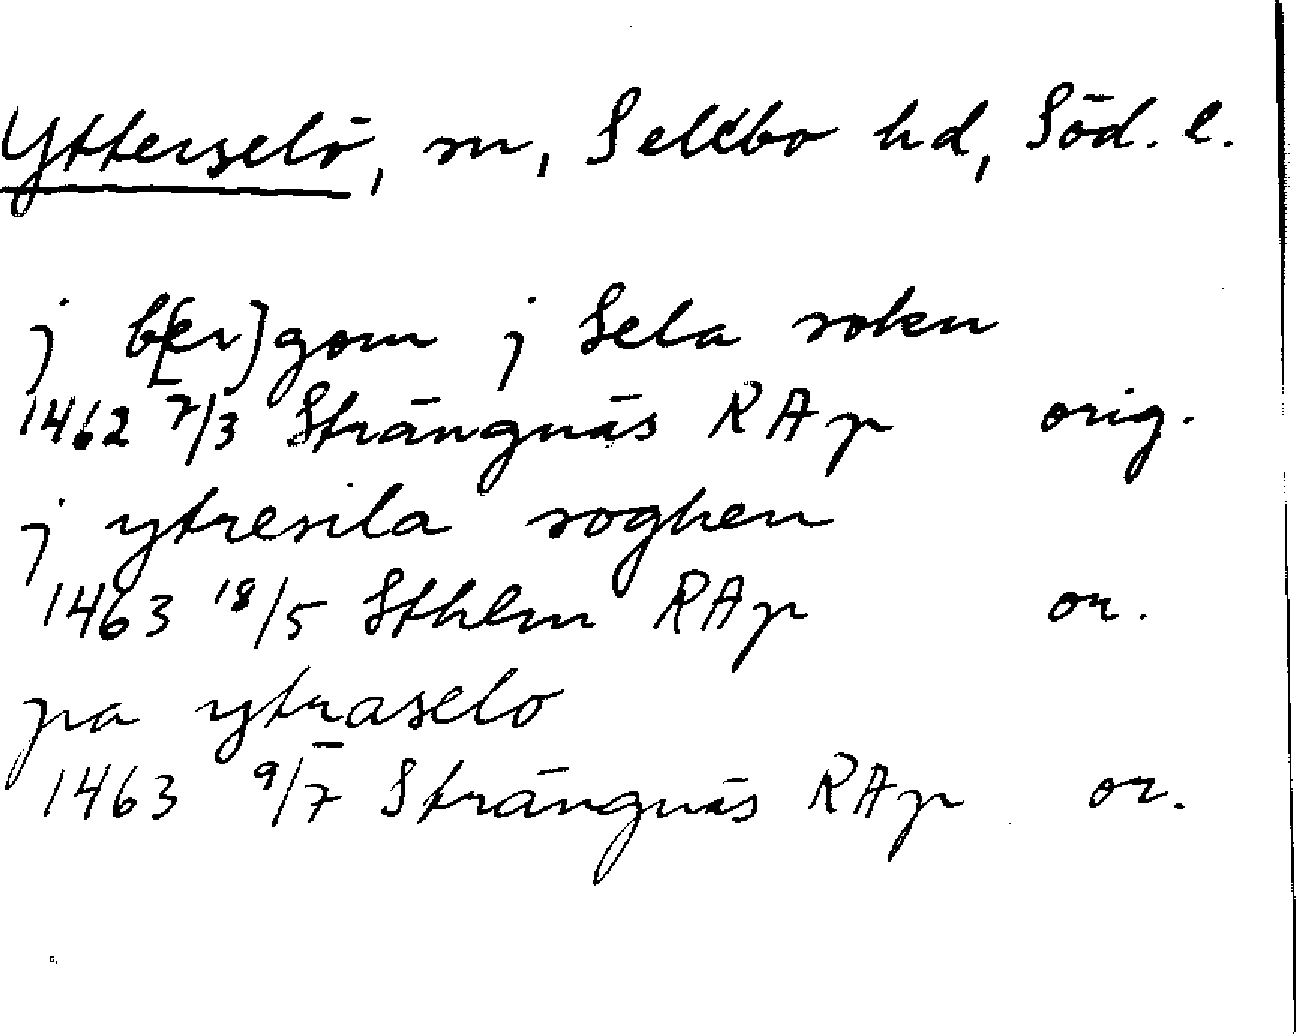 Ytterselö, sn, Selebo hd, Söd. l.
j b[er]gom j Sela sokn
1462 7/3 Strängnäs RAp orig.
j ytresila soghen
1463 18/5 Sthlm RAp or.
pa ytraselo
1463 9/7 Strängnäs RAp or.